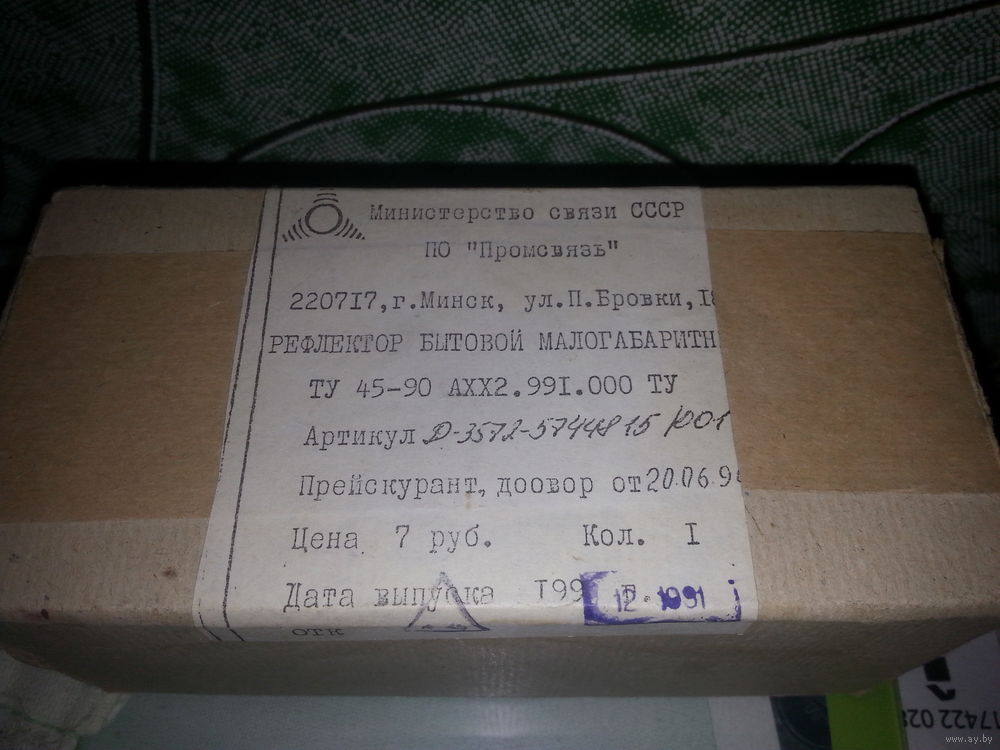 Министерство связи СССР
ПО "Промсвязь"
220717, г.Минск, ул.П.Бровки, I8
РЕФЛЕКТОР БЫТОВОЙ МАЛОГАБАРИТН
ТУ 45-90 АХХ2.99I.000 ТУ
Артикул Д-3572-5744815/001
Прейскурант, доовор от 20.06.9
Цена 7 руб. Кол. I
Дата выпуска I99 г. 12.1991
ОТК
17422 028
www.ay.by